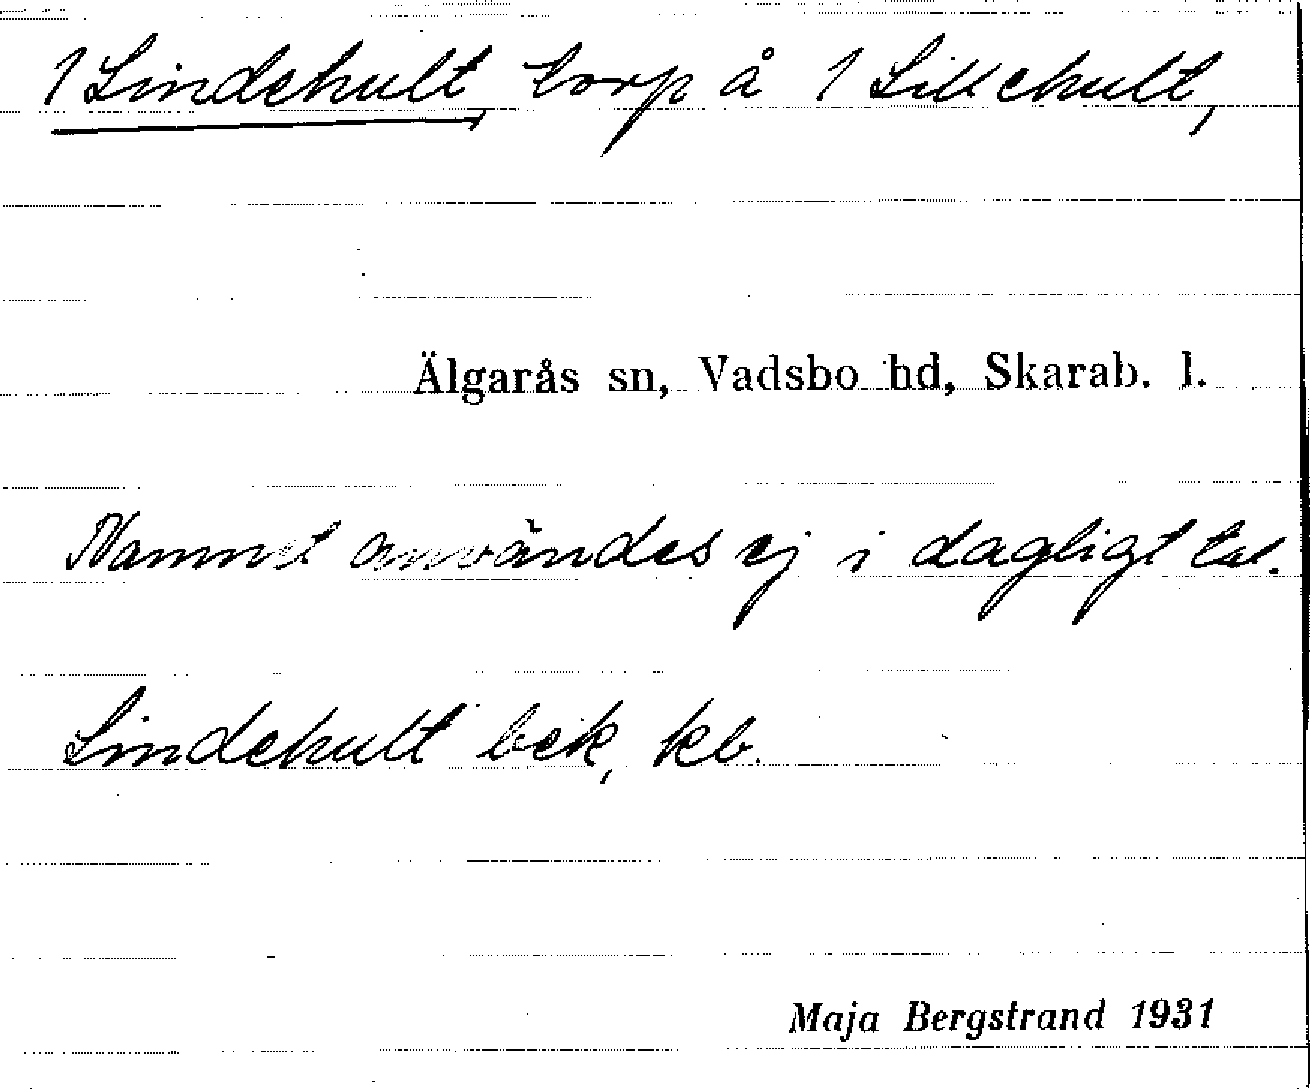 1 Lindehult, torp å 1 Lillehult,
Älgarås sn, Vadsbo hd, Skarab. l.
Namnet användes ej i dagligt tal.
Lindehult bek, kb.
Maja Bergstrand 1931